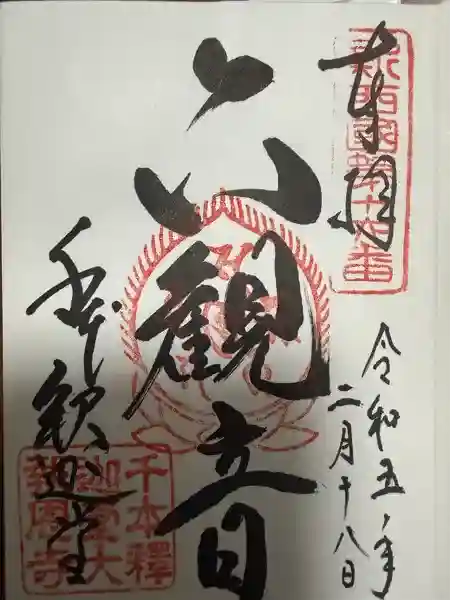 奉拝
新西國第十六番
令和五年
二月十八日
六観音
千本釈迦堂
千本釋
迦堂大
報恩寺